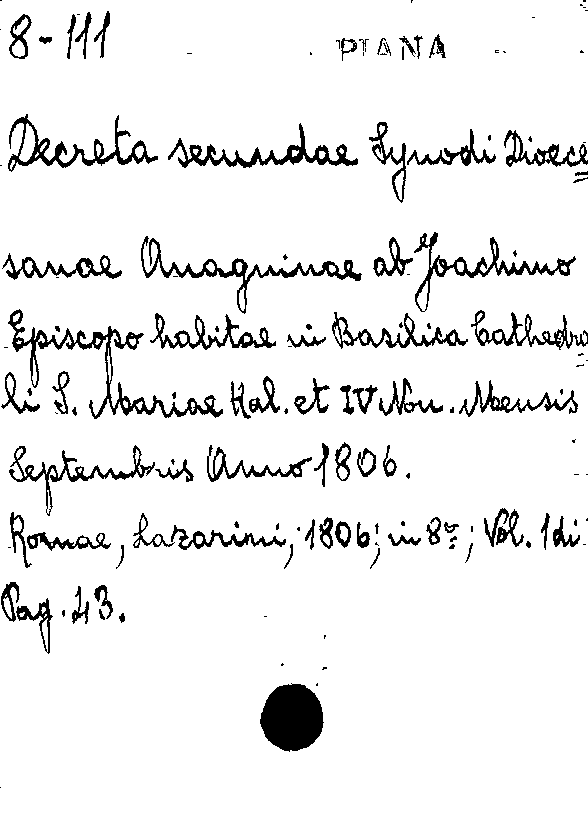 8-111 PIANA
Decreta secundae Synodi Dioece=
sanae Anagninae ab Joachimo
Episcopo habitae in Basilica Cathedra=
li S. Mariae Kal. et IV Non. Mensis
Septembris Anno 1806.
Romae, Lazarini, 1806; in 8º; Vol. 1 di
Pag. 43.